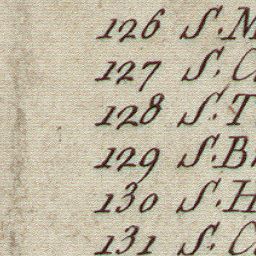 126 S. M
127 S. C
128 S. T
129 S. B
130 S. H
131 S. C